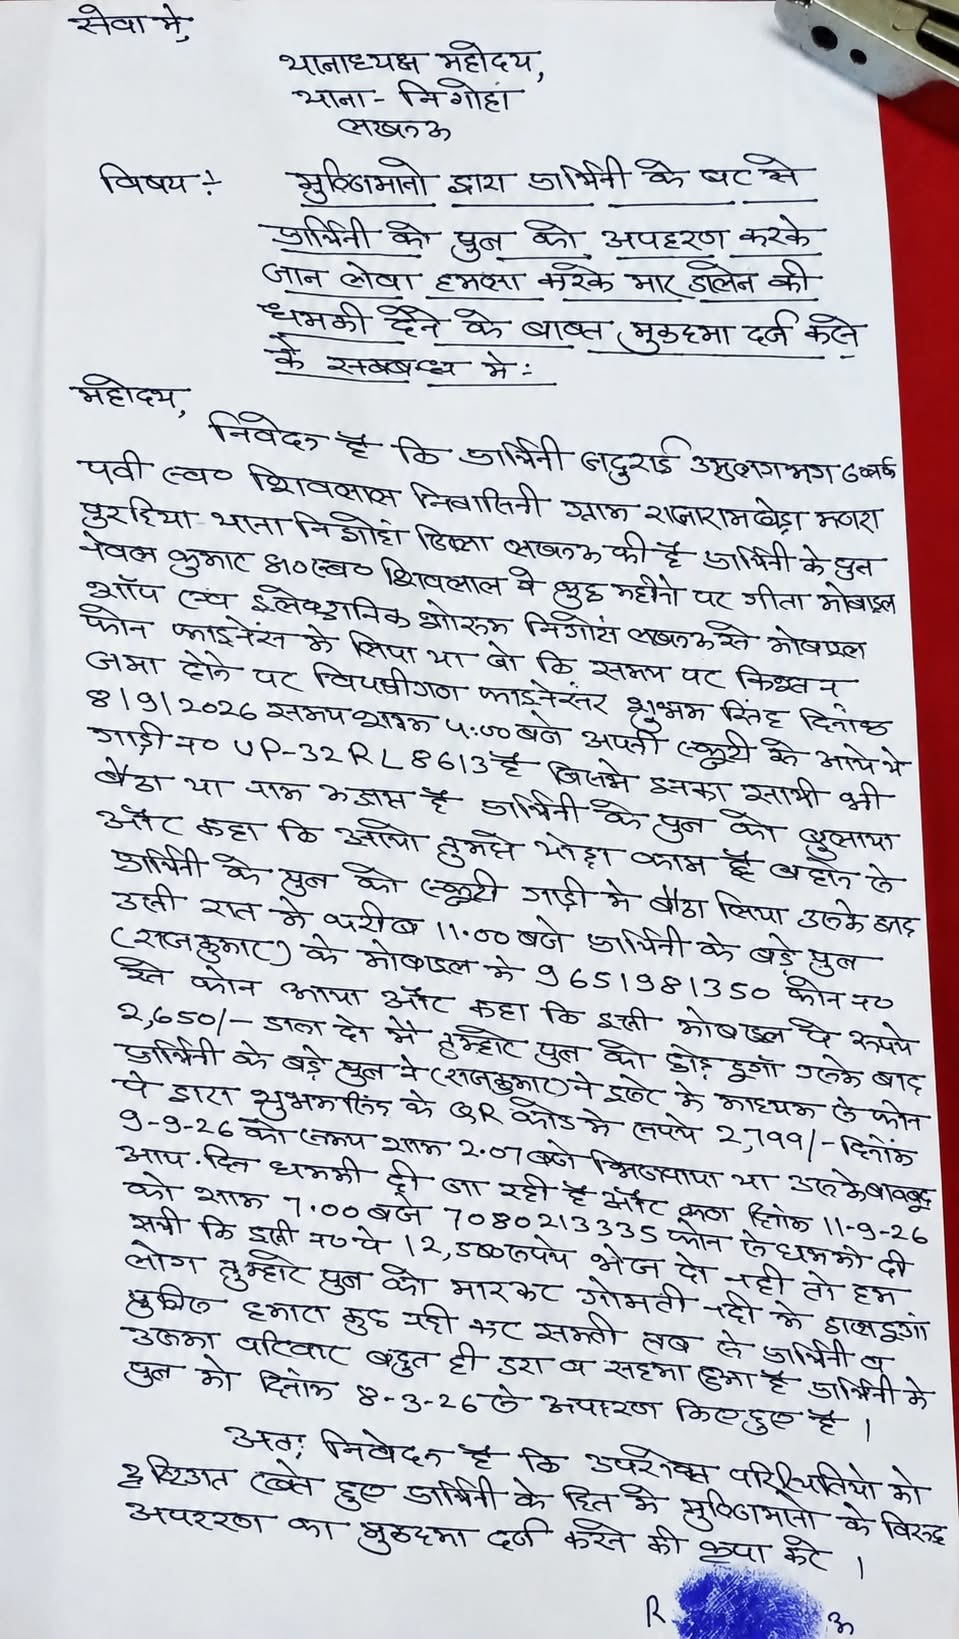 सेवा मे,
थानाध्यक्ष महोदय,
थाना - निगोहां
लखनऊ
विषय :- मुल्जिमानो द्वारा प्रार्थिनी के घर से
प्रार्थिनी के पुत्र को अपहरण करके
जान लेवा हमला करके मार डालने की
धमकी देने के बाबत मुकदमा दर्ज करने
के सम्बन्ध मे :-
महोदय,
निवेदन है कि प्रार्थिनी जदुराई उम्र लगभग वर्ष
पत्नी स्व० शिवलाल निवासिनी ग्राम राजारामखेड़ा मजरा
पुरहिया थाना निगोहां जिला लखनऊ की है प्रार्थिनी के पुत्र
नेवल कुमार S/O स्व० शिवलाल ने कुछ महीने पर गीता मोबाइल
शॉप एवं इलेक्ट्रानिक शोरूम निगोहां लखनऊ से मोबाइल
फोन फाइनेंस मे लिया था जो कि समय पर किश्त न
जमा होने पर विपक्षीगण फाइनेंसर शुभम सिंह दिनांक
8/9/2026 समय शाम 5:00 बजे अपनी स्कूटी से आये थे
गाड़ी न० UP-32 RL 8613 है जिसमे उनका साथी भी
बैठा था नाम है प्रार्थिनी के पुत्र को बुलाया
और कहा कि आओ तुमसे थोड़ा काम है बहाने से
प्रार्थिनी के पुत्र को स्कूटी गाड़ी मे बैठा लिया उसके बाद
उसी रात मे करीब 11.00 बजे प्रार्थिनी के बड़े पुत्र
(राजकुमार) के मोबाइल मे 9651981350 फोन न०
से फोन आया और कहा कि इसी मोबाइल पे रूपये
2,650/- डाल दो मै तुम्हारे पुत्र को छोड़ दूगाँ उसके बाद
प्रार्थिनी के बड़े पुत्र ने (राजकुमार) ने के माध्यम से फोन
पे द्वारा शुभम सिंह के QR कोड मे रूपये 2,799/- दिनांक
9-9-26 को समय शाम 2.07 बजे भिजवाया था उसके बावजूद
आए दिन धमकी दी जा रही है और कल दिनांक 11-9-26
को शाम 7.00 बजे 7080213335 फोन से धमकी दी
कि इसी न० पे 12,500 रूपये भेज दो नही तो हम
लोग तुम्हारे पुत्र को मारकर गोमती नदी मे डाल दूगां
पुलिस हमारा कुछ नही कर सकती तब से प्रार्थिनी व
उसका परिवार बहुत ही डरा व सहमा हुआ है प्रार्थिनी के
पुत्र को दिनांक 8-9-26 से अपहरण किए हुए है ।
अतः निवेदन है कि उपरोक्त परिस्थितियो को
द्रष्टिगत रखते हुए प्रार्थिनी के हित मे मुल्जिमानो के विरुद्ध
अपहरण का मुकदमा दर्ज करने की कृपा करे ।